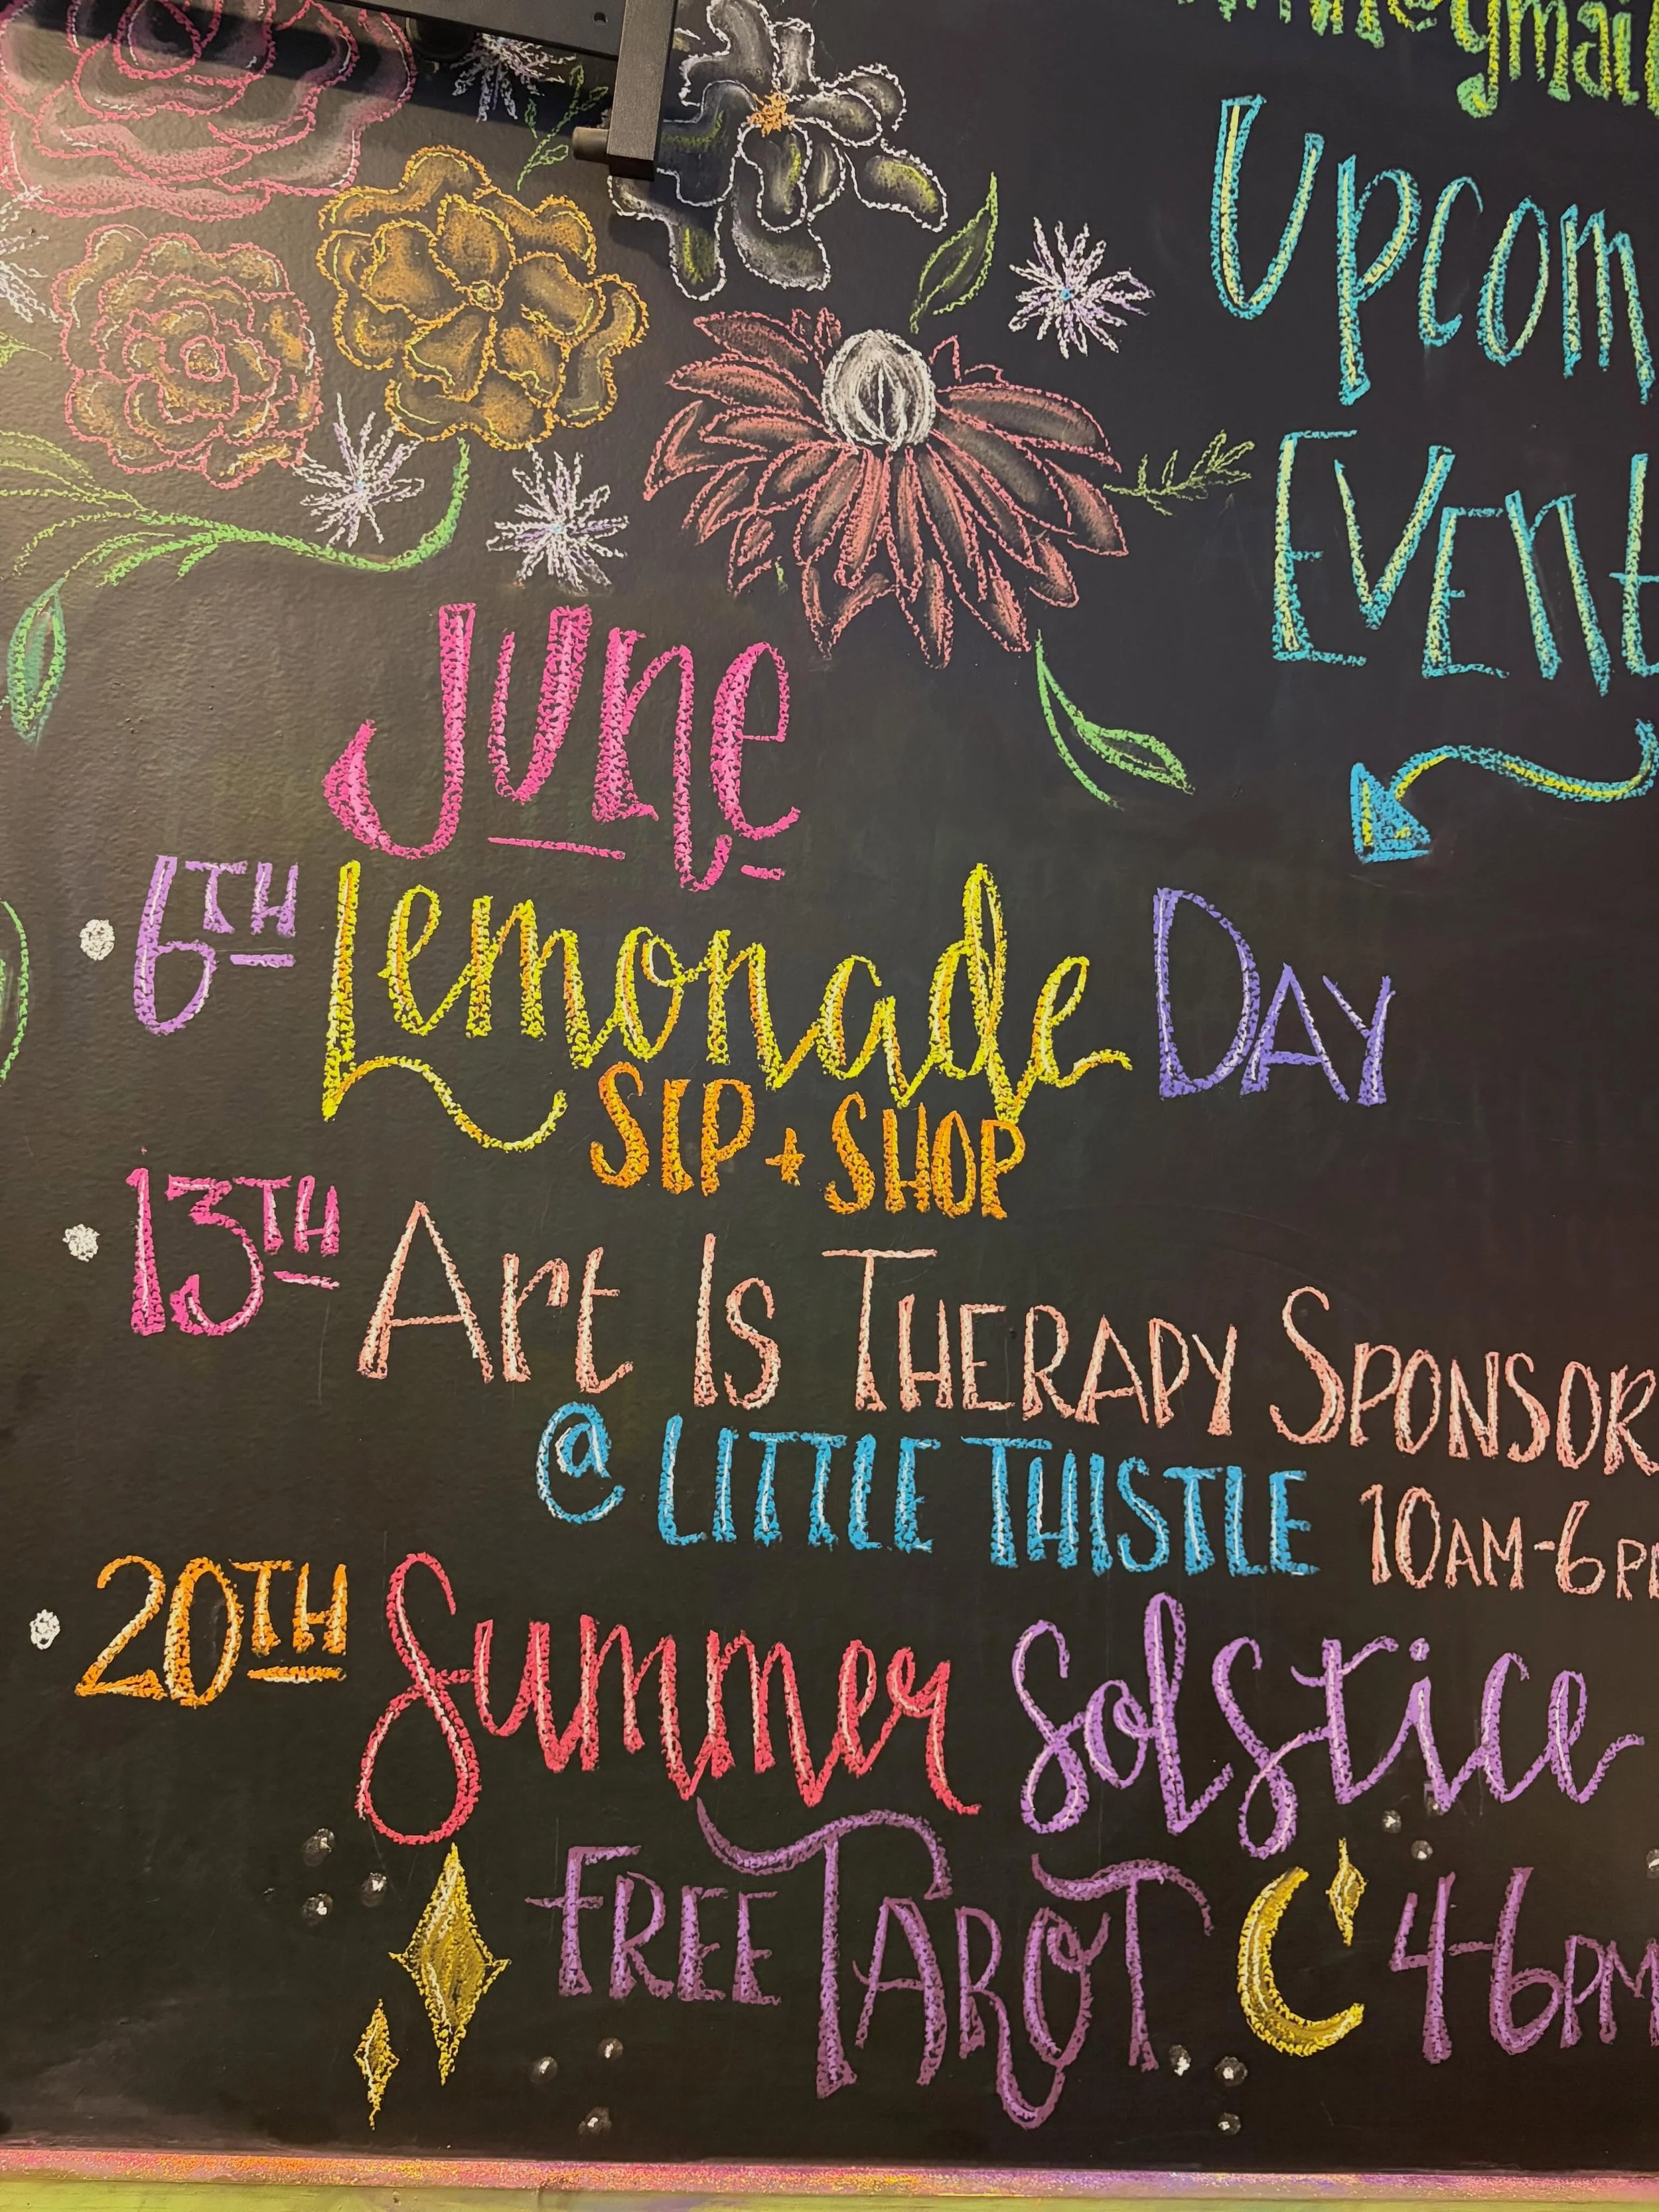 gmail
Upcom
Event
June
6TH Lemonade DAY
SIP + SHOP
13TH Art Is THERAPY SPONSOR
@ LITTLE THISTLE 10AM-6P
20TH Summer Solstice
FREE TAROT 4-6PM